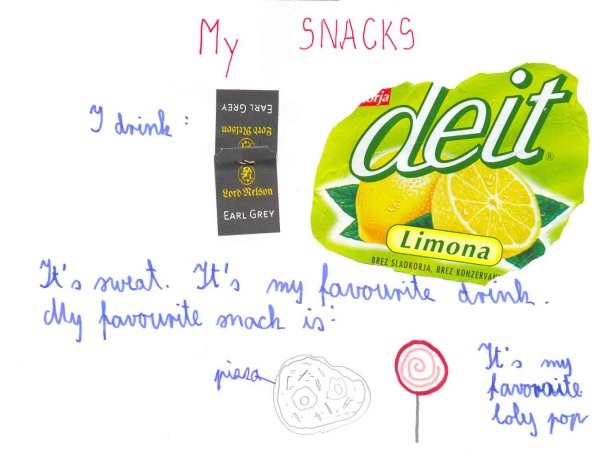 My SNACKS
I drink:
EARL GREY
Lord Nelson
Lord Nelson
EARL GREY
deit
®
Limona
BREZ SLADKORJA, BREZ KONZERVAN
It's sweat. It's my favourite drink.
My favourite snack is:
pizza
It's my
favoraite
loly pop